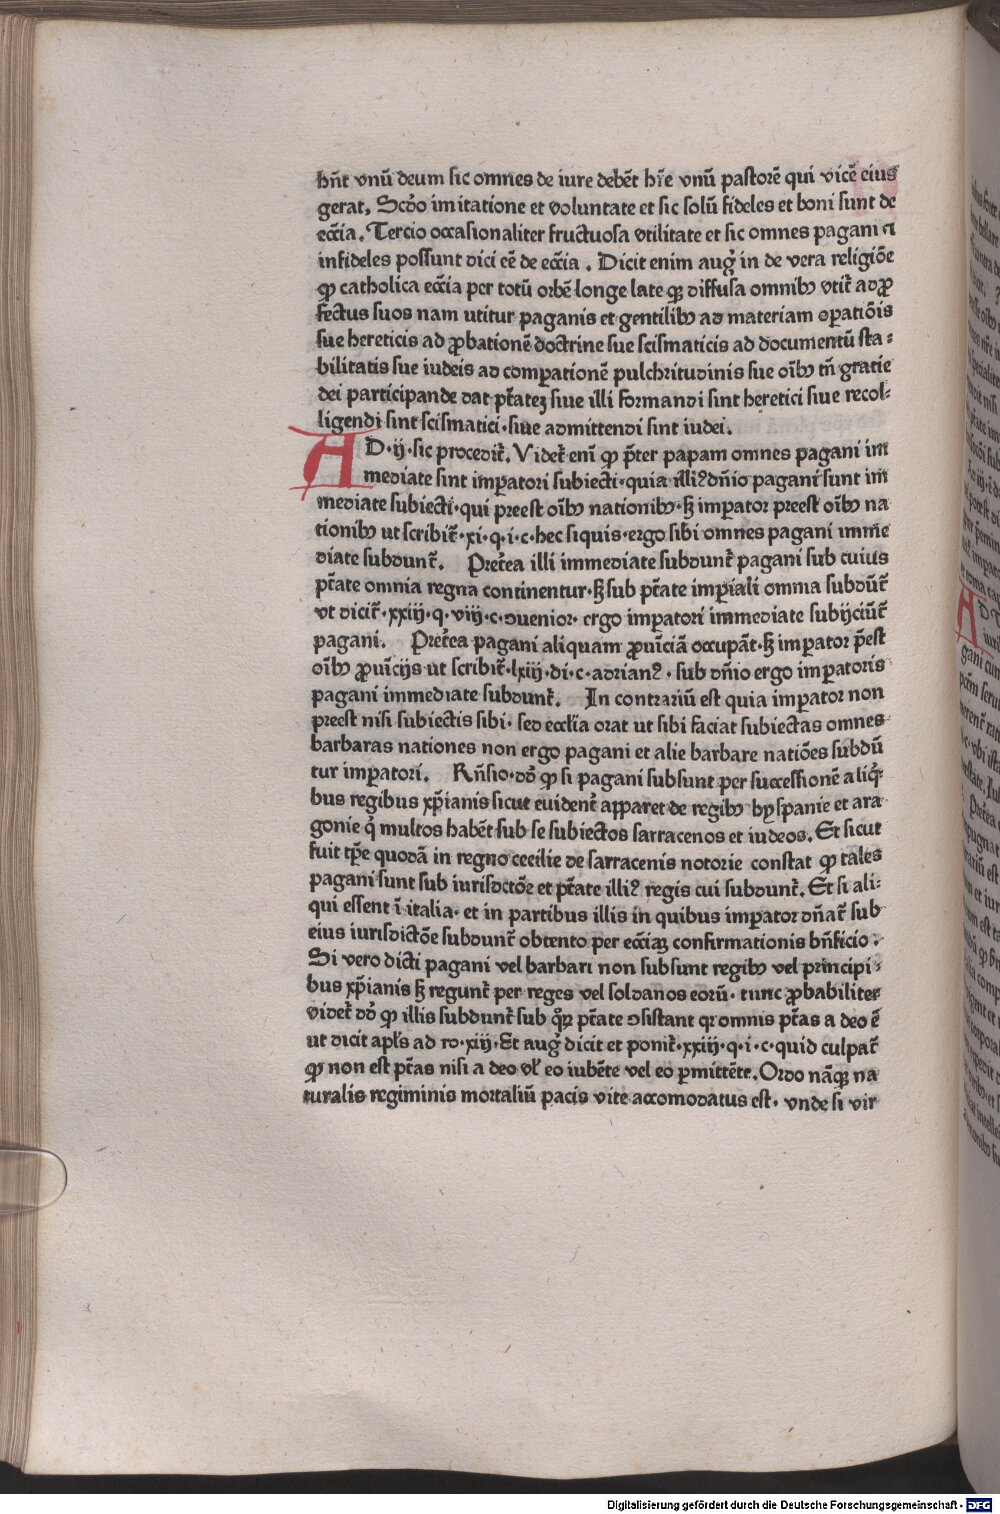 hn̄t vnū deum sic omnes de iure debēt hr̄e vnū pastorē qui vicē eius
gerat. Scd̄o imitatione et voluntate et sic solū fideles et boni sunt de
ecc̄ia. Tercio occasionaliter fructuosa vtilitate et sic omnes pagani ⁊
infideles possunt dici eē de ecc̄ia. Dicit enim aug̉ in de vera religiōe
ꝙ catholica ecc̄ia per totū orbē longe late qꝫ diffusa omnibꝫ vtit̄ ad ꝓ
fectus suos nam utitur paganis et gentilibꝫ ad materiam oꝑatiōis
sue hereticis ad ꝓbationē doctrine sue scismaticis ad documentū sta⸗
bilitatis sue iudeis ad comꝑationē pulchritudinis sue oībꝫ tn̄ gratie
dei participande dat ptāteꝫ siue illi formandi sint heretici siue recol⸗
ligendi sint scismatici·siue admittendi sint iudei.
AD·ij·sic procedit̄. Videt̄ enī ꝙ p̄ter papam omnes pagani im
mediate sint imꝑatori subiecti·quia illiꝰ dn̄io pagani sunt im
mediate subiecti·qui preest oībꝫ nationibꝫ·sꝫ imꝑator preest oībꝫ na
tionibꝫ ut scribit̄·xi·q·i·c·hec siquis·ergo sibi omnes pagani imme
diate subdunt̄. Pret̄ea illi immediate subdunt̄ pagani sub cuius
ptāte omnia regna continentur·sꝫ sub ptāte imꝑiali omnia subdūt̄
vt dicit̄·xxiij·q·viij·c·ↄuenior·ergo imꝑatori immediate subijciūt̄
pagani. Pret̄ea pagani aliquam ꝓuīciā occupāt·sꝫ imꝑator p̄est
oībꝫ ꝓuīcijs ut scribit̄·lxiij·di·c·adrianꝰ·sub dn̄io ergo imꝑatoris
pagani immediate subdunt̄. In contrariū est quia imꝑator non
preest nisi subiectis sibi·sed eccl̄ia orat ut sibi faciat subiectas omnes
barbaras nationes non ergo pagani et alie barbare natiōes subdū
tur imꝑatori. Rn̄sio·dd̓ ꝙ si pagani subsunt per successionē aliq̓
bus regibus xp̄ianis sicut euident̄ apparet de regibꝫ hyspanie et ara
gonie q̓ multos habēt sub se subiectos sarracenos et iudeos. Et sicut
fuit tp̄e quodā in regno cecilie de sarracenis notorie constat ꝙ tales
pagani sunt sub iurisdictōe et ptāte illiꝰ regis cui subdunt̄. Et si ali⸗
qui essent ī italia·et in partibus illis in quibus imꝑator dn̄at̄ sub
eius iurisdictōe subdunt̄ obtento per ecc̄iaꝫ confirmationis bn̄ficio.
Si vero dicti pagani vel barbari non subsunt regibꝫ vel principi⸗
bus xp̄ianis sꝫ regunt̄ per reges vel soldanos eorū·tunc ꝓbabiliter
videt̄ dd̓ ꝙ illis subdunt̄ sub qͦꝝ ptāte ↄsistant qꝛ omnis ptās a deo ē
ut dicit apl̄s ad ro·xiij·Et aug̉ dicit et ponit̄·xxiij·q·i·c·quid culpat̄
ꝙ non est ptās nisi a deo vl̓ eo iubēte vel eo ꝑmittēte. Ordo nāqꝫ na
turalis regiminis mortaliū pacis vite accomodatus est·vnde si vir
Digitalisierung gefördert durch die Deutsche Forschungsgemeinschaft - DFG